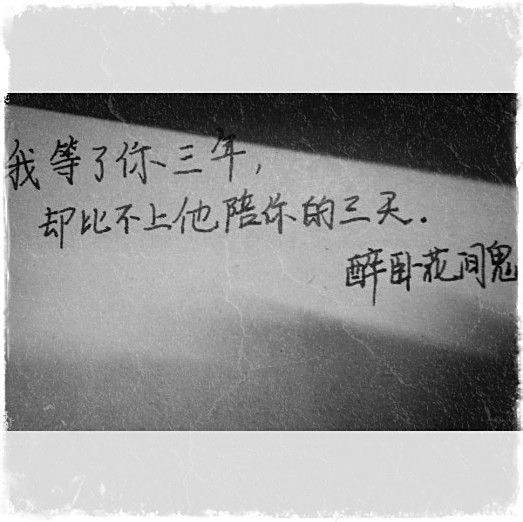 我等了你三年,
却比不上他陪你的三天.
醉卧花间鬼